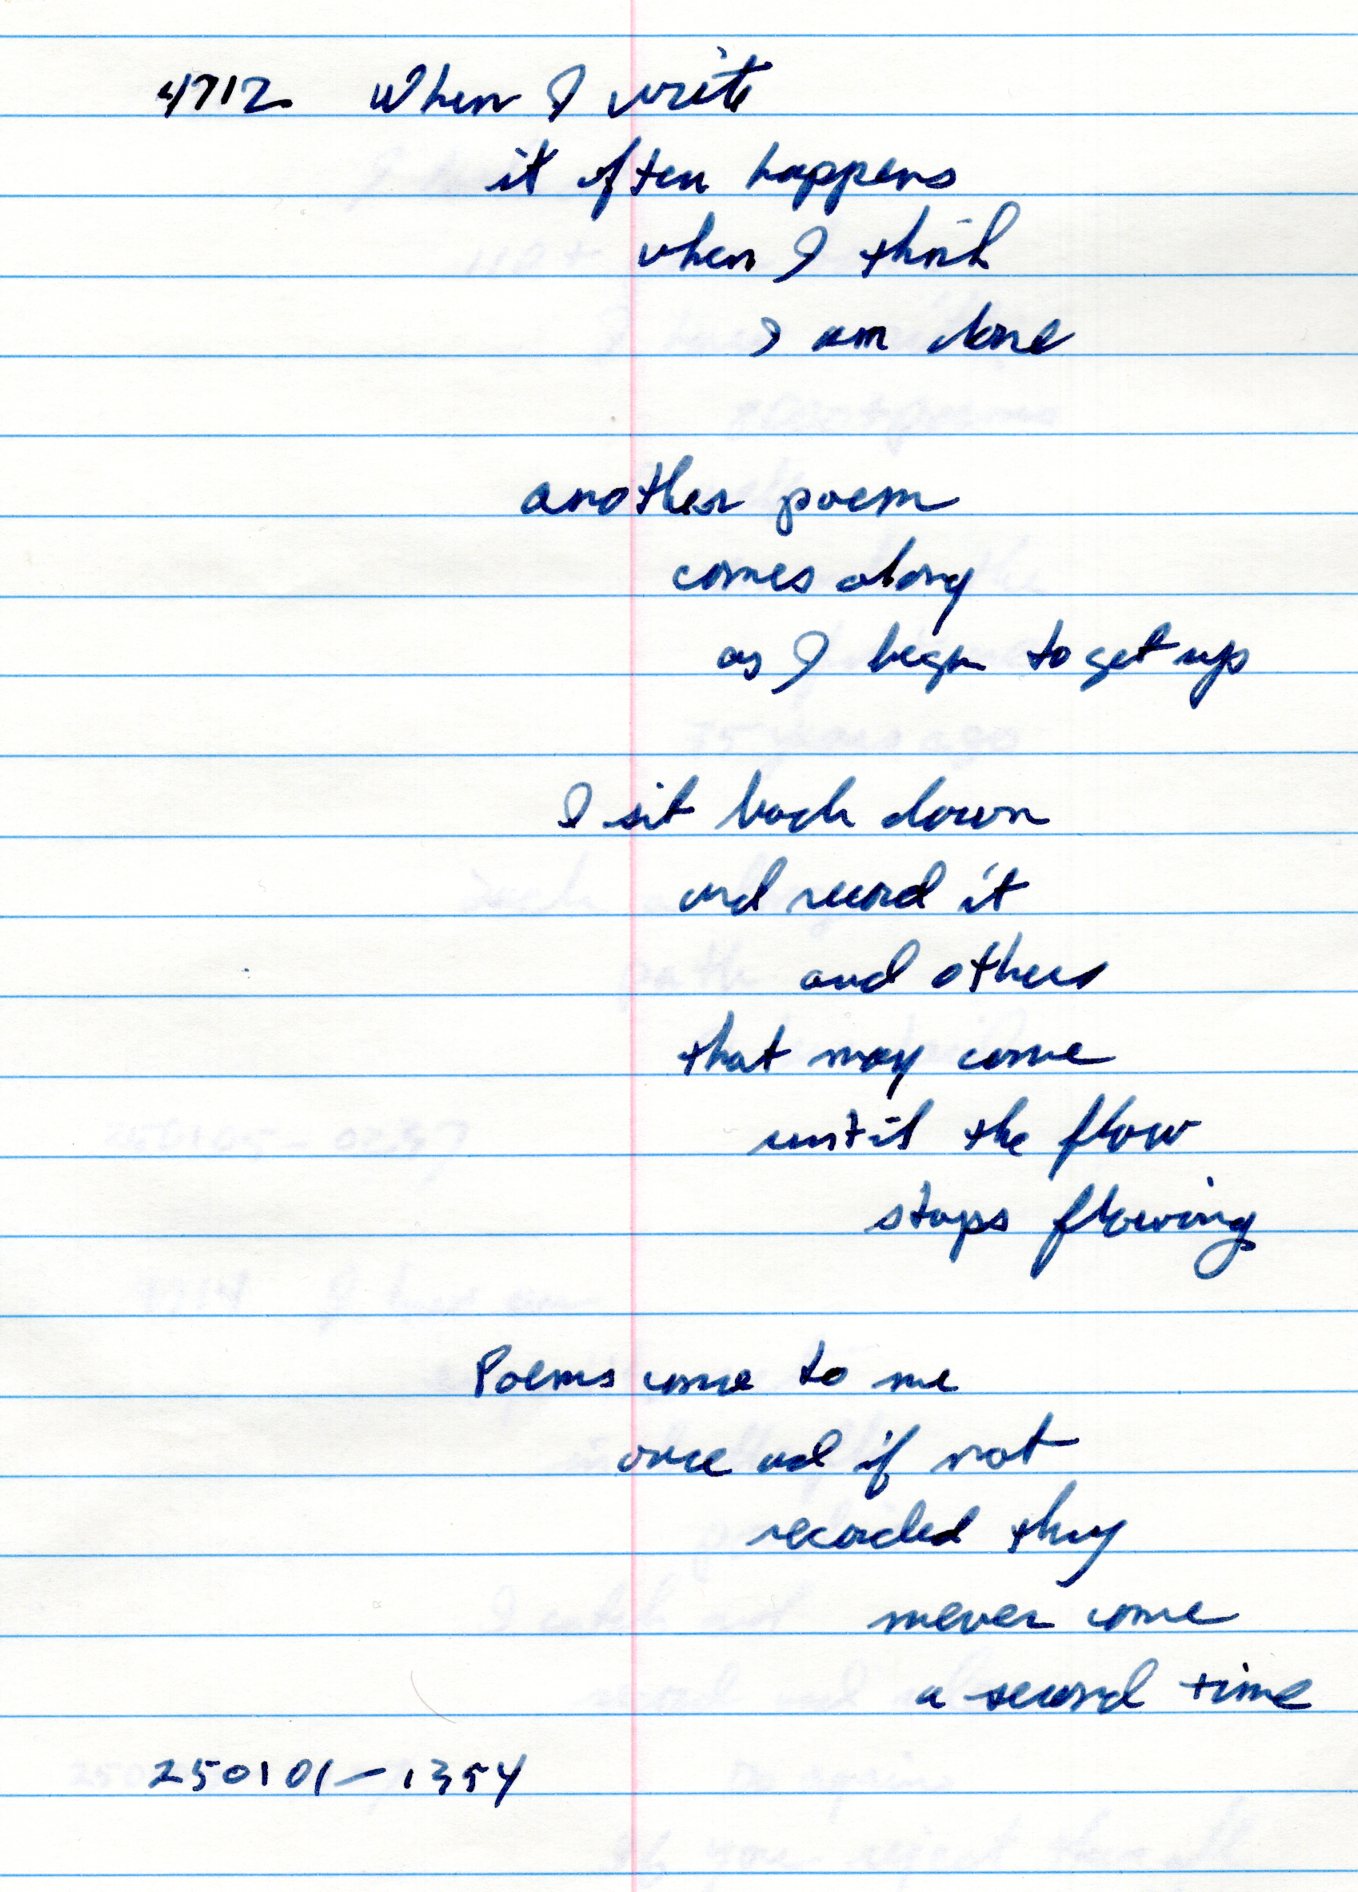 4712 When I write
it often happens
when I think
I am done
another poem
comes along
as I begin to get up
I sit back down
and record it
and others
that may come
until the flow
stops flowing
Poems come to me
once and if not
recorded they
never come
a second time
250101-1354